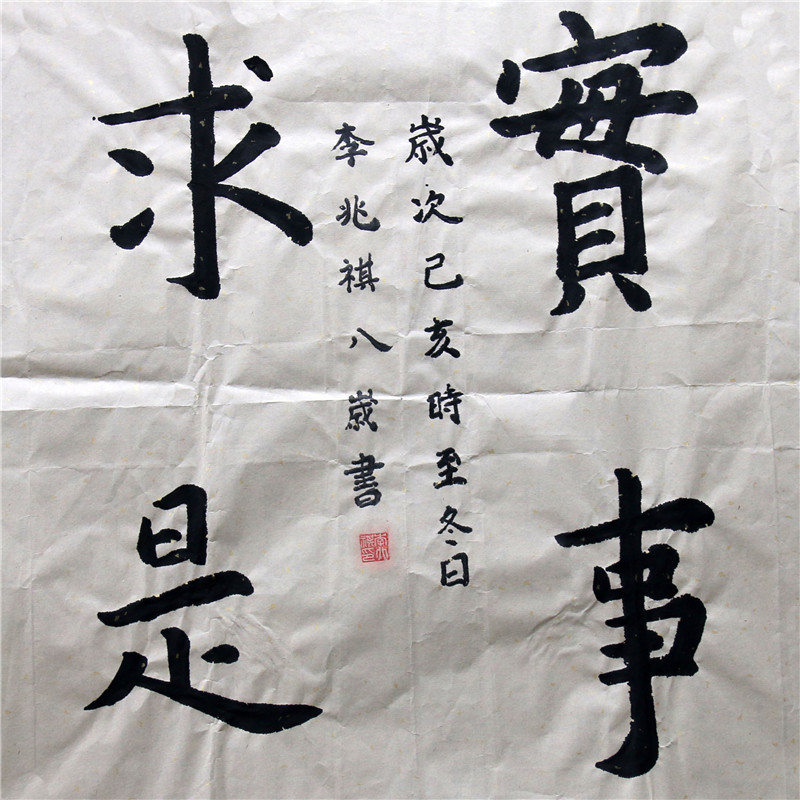 實事
求是
歲次己亥時至冬日
李兆祺八歲書